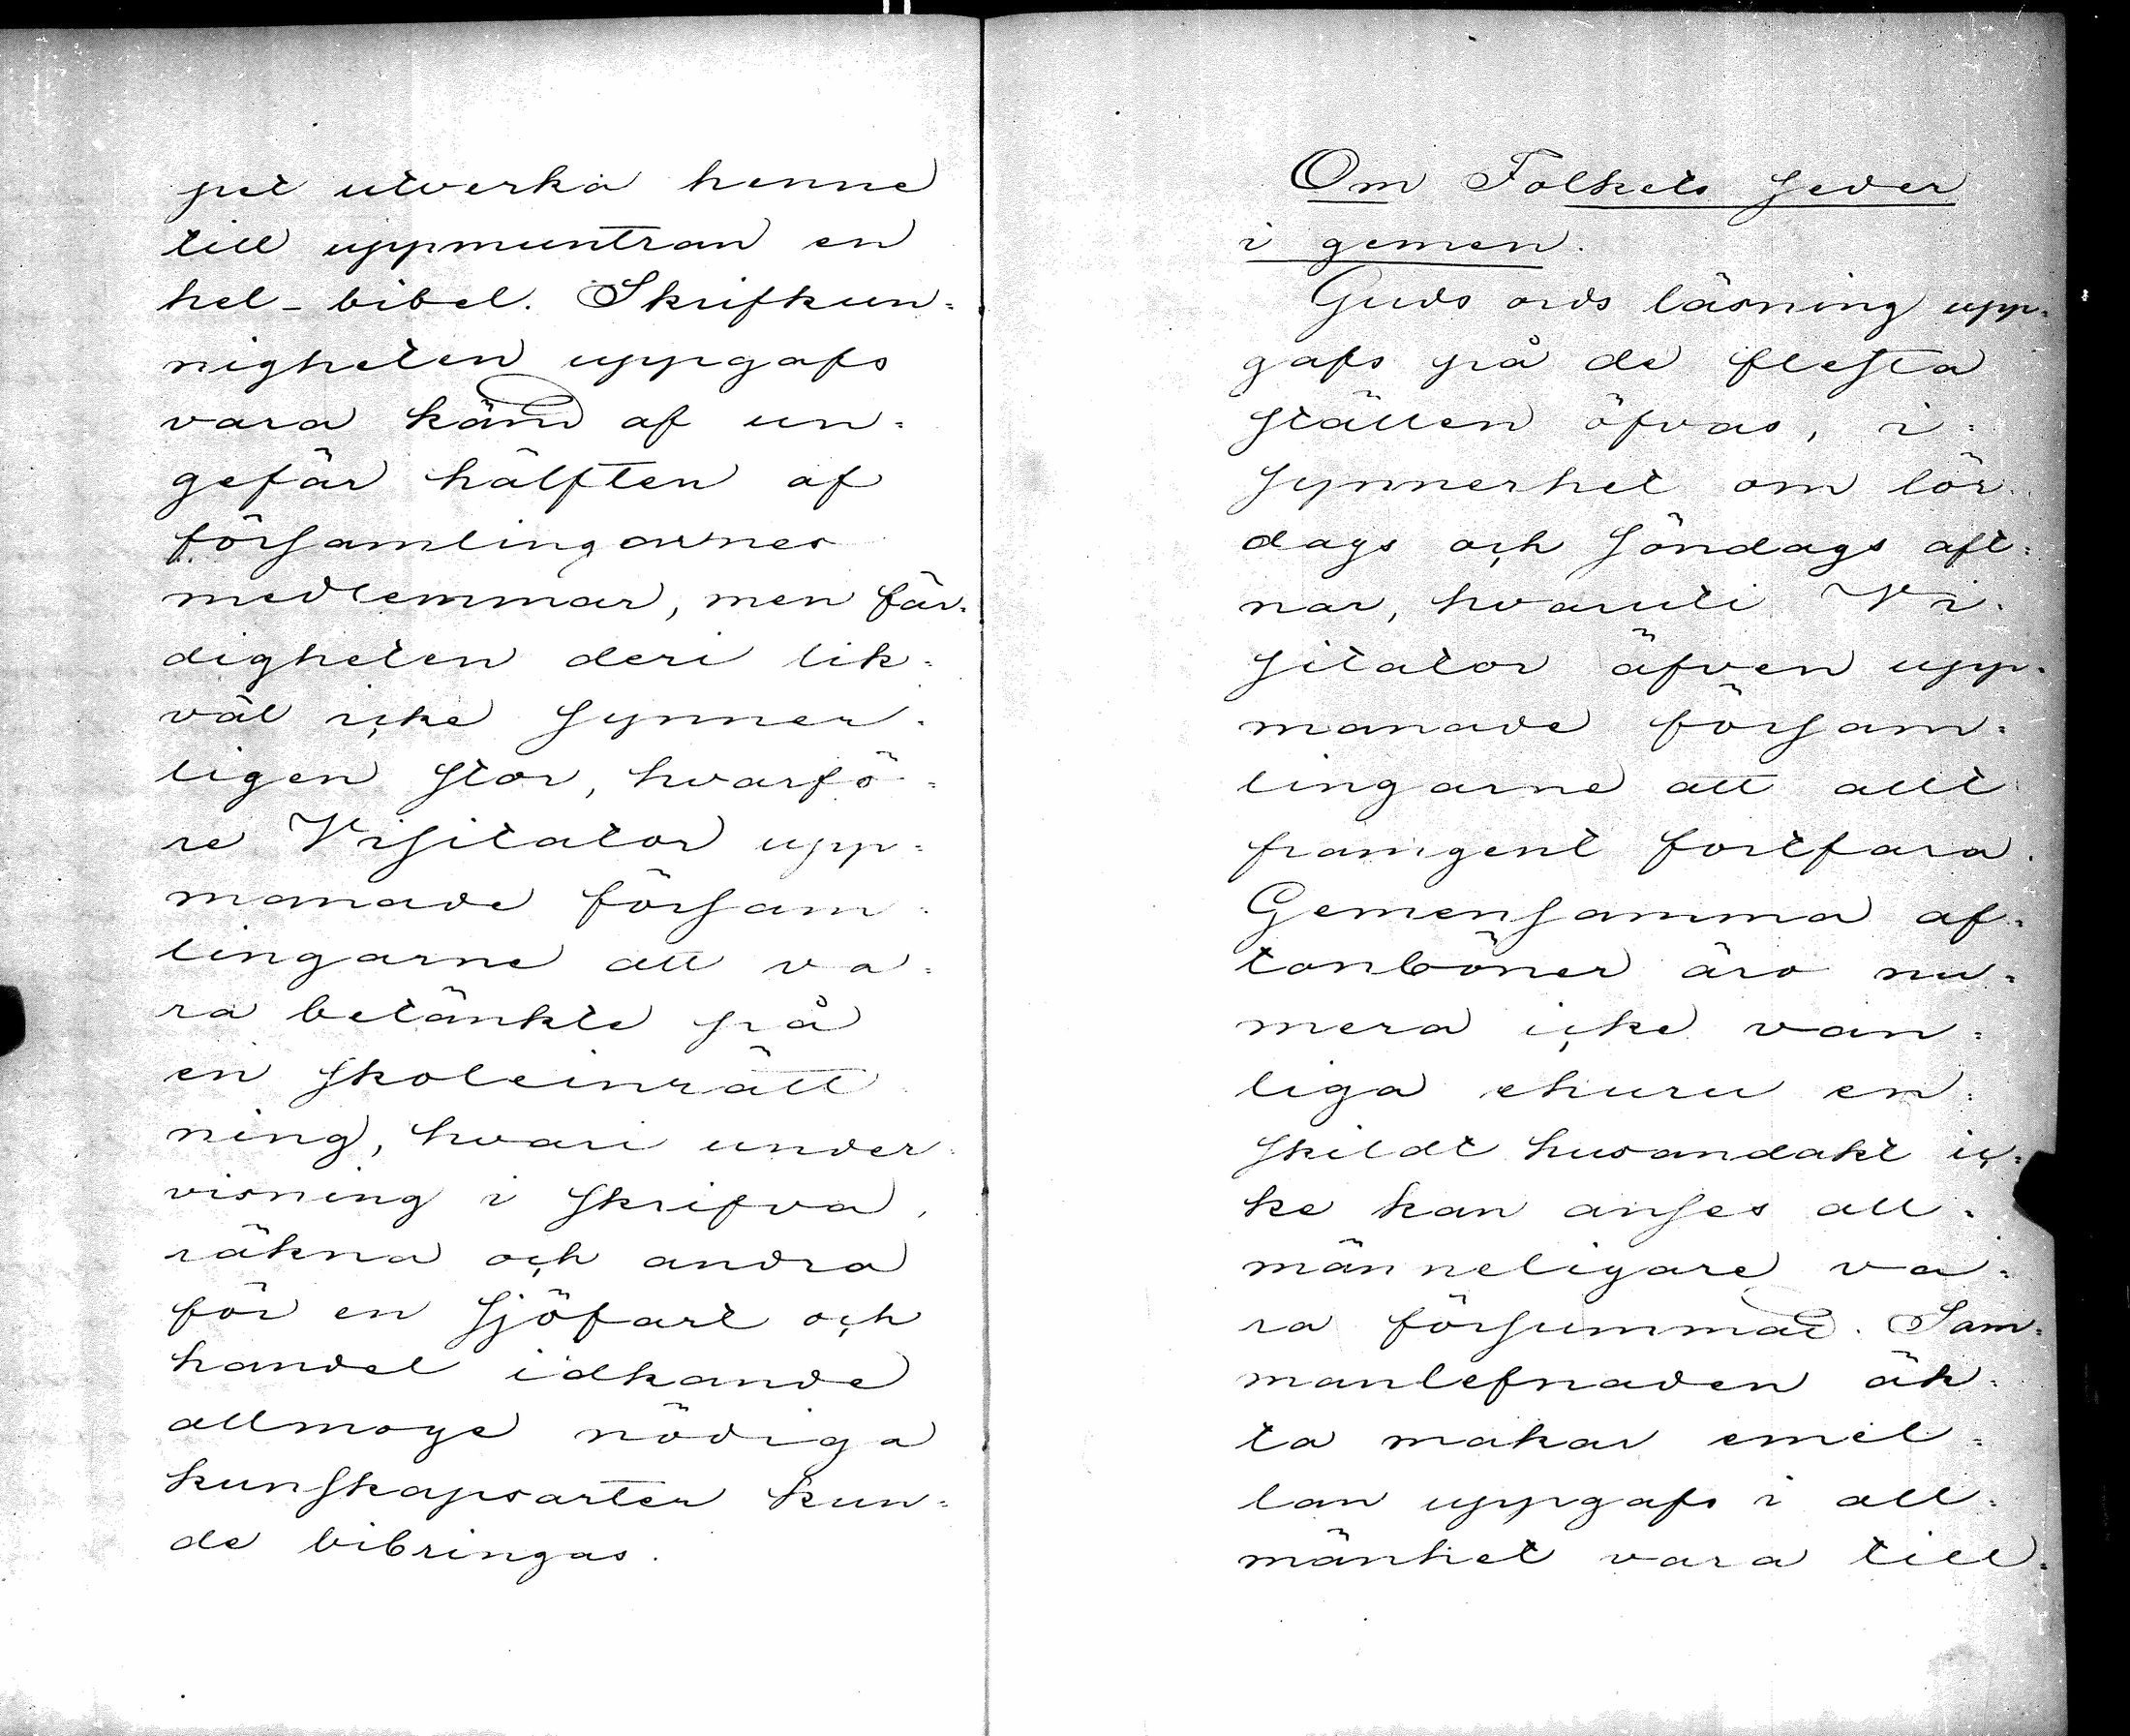 pet utverka henne
till uppmuntran en
hel-bibel. Skrifkun=
nigheten uppgafs
vara känd af un=
gefär hälften af
församlingarnes
medlemmar, men fär=
digheten deri lik=
väl icke synner=
ligen stor, hvarfö=
re Visitator upp=
manade försam=
lingarne att va=
ra betänkte på
en skoleinrätt
ning, hvari under=
visning i skrifva,
räkna och andra
för en sjöfart och
handel idkande
allmoge nödiga
kunskapsarter kun=
de bibringas.
Om Folkets seder
i gemen.
Guds ords läsning upp=
gafs på de flesta
ställen öfvas, i=
synnerhet om lör=
dags och söndags aft=
nar, hvaruti Vi=
sitator äfven upp=
manade försam=
lingarne att allt
framgent fortfara.
Gemensamma af=
tonböner äro nu=
mera icke van=
liga ehuru en=
skildt husandakt ic=
ke kan anses all=
männeligare va=
ra försummad. Sam=
manlefnaden äk=
ta makar emel=
lan uppgafs i all=
mänhet vara till=